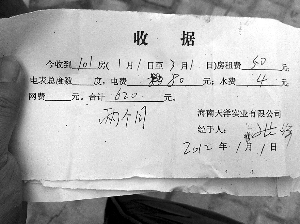 收据
今收到101房(1月1日至3月1日)房租费 元,
电表总度数 度,电费 80元;水费4元
网费 元。合计620元。
两个月
海南天洋实业有限公司
经手人:
2012年1月1日